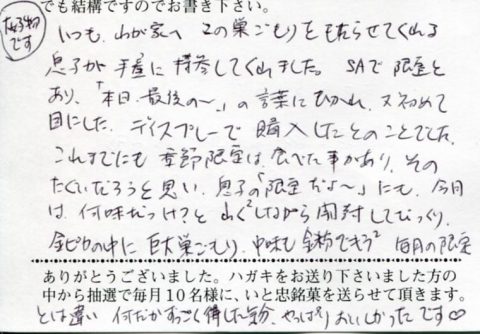 でも結構ですのでお書き下さい。
大好物です
いつも、わが家へ この巣ごもりをもたらせてくれる
息子が 手土産に 持参してくれました。 SAで 限定と
あり、「本日、最後の〜」の言葉にひかれ、又初めて
目にした、ディスプレーで 購入したとのことでした。
これまでにも 季節限定は、食べた事があり、その
たぐいだろうと思い、息子の「限定だよ〜」にも、今回
は、何味だっけ?と わくわくしながら 開封してびっくり。
金ピカの中に 巨大巣ごもり、中味も 金粉でキラキラ 毎月の限定
ありがとうございました。ハガキをお送り下さいました方の
中から抽選で毎月10名様に、いと忠銘菓を送らせて頂きます。
とは違い 何だかすっごく得した気分、やっぱりおいしかったです♡